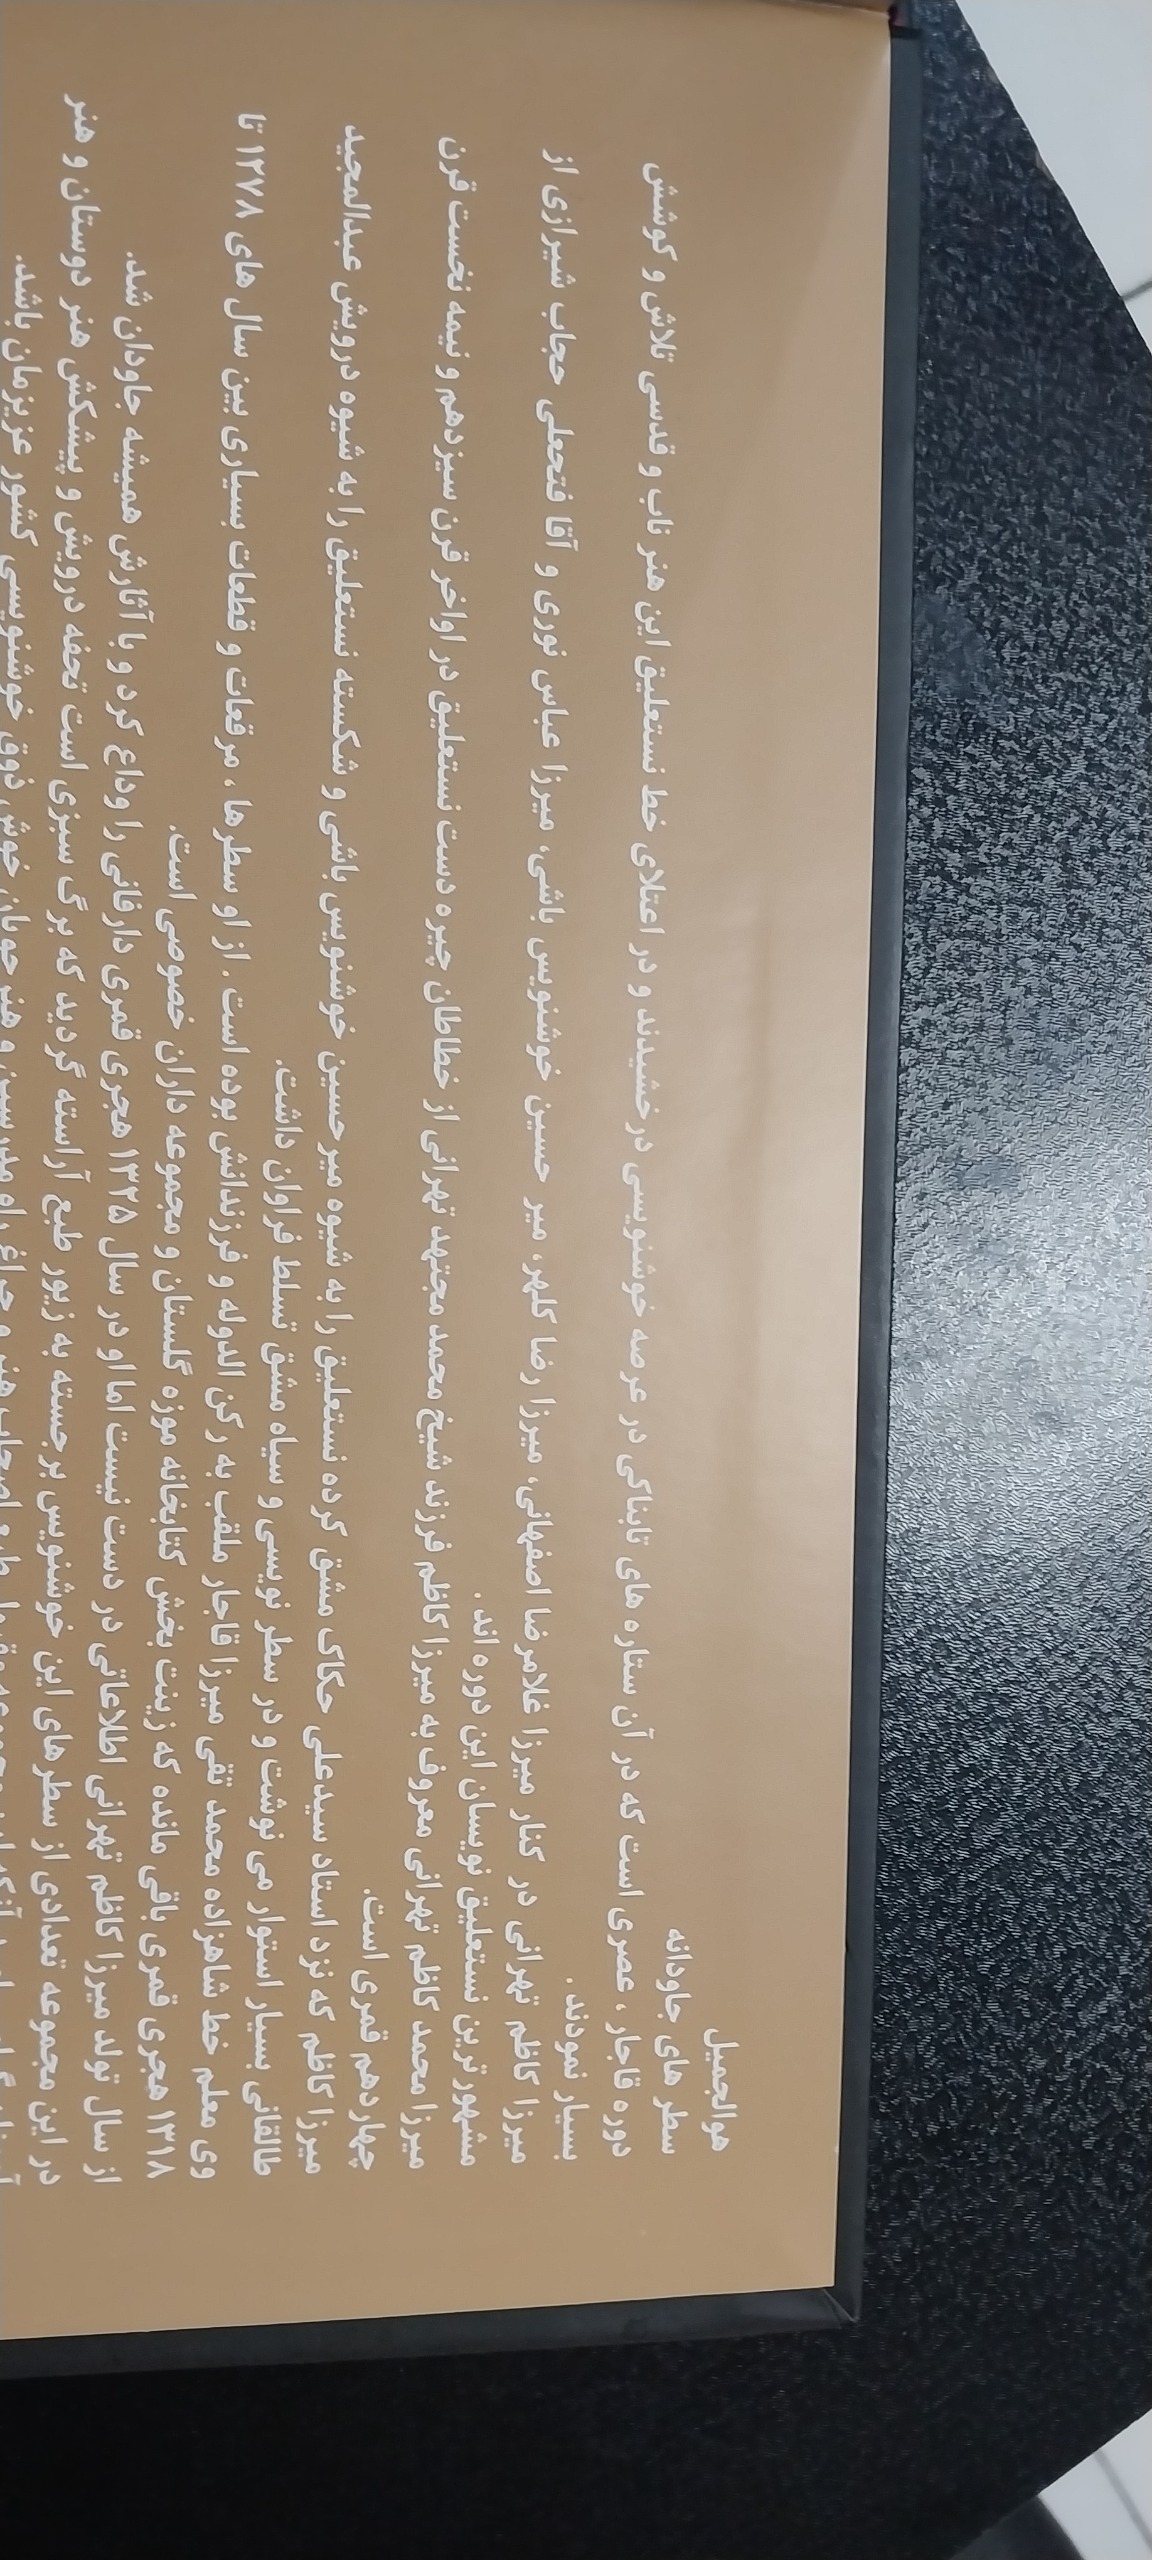 هوالجمیل
سطر های جاودانه
دوره قاجار ، عصری است که در آن ستاره های تابناکی در عرصه خوشنویسی درخشیدند و در اعتلای خط نستعلیق این هنر ناب و قدسی تلاش و کوشش
بسیار نمودند .
میرزا کاظم تهرانی در کنار میرزا غلامرضا اصفهانی، میرزا رضا کلهر، میر حسین خوشنویس باشی، میرزا عباس نوری و آقا فتحعلی حجاب شیرازی از
مشهورترین نستعلیق نویسان این دوره اند.
میرزا محمد کاظم تهرانی معروف به میرزا کاظم فرزند شیخ محمد مجتهد تهرانی از خطاطان چیره دست نستعلیق در اواخر قرن سیزدهم و نیمه نخست قرن
چهاردهم قمری است.
میرزا کاظم که نزد استاد سیدعلی حکاک مشق کرده نستعلیق را به شیوه میرحسین خوشنویس باشی و شکسته نستعلیق را به شیوه درویش عبدالمجید
طالقانی بسیار استوار می نوشت و در سطر نویسی و سیاه مشق تسلط فراوان داشت.
وی معلم خط شاهزاده محمد تقی میرزا قاجار ملقب به رکن الدوله و فرزندانش بوده است . از او سطرها ، مرقعات و قطعات بسیاری بین سال های ۱۲۷۸ تا
۱۳۱۸ هجری قمری باقی مانده که زینت بخش کتابخانه موزه گلستان و مجموعه داران خصوصی است.
از سال تولد میرزا کاظم تهرانی اطلاعاتی در دست نیست اما او در سال ۱۳۲۵ هجری قمری دارفانی را وداع کرد و با آثارش همیشه جاودان شد.
در این مجموعه تعدادی از سطرهای این خوشنویس برجسته به زیور طبع آراسته گردید که برگ سبزی است تحفه درویش و پیشکش هنر دوستان و هنر
خوش ذوق خوشنویسی کشور عزیزمان باشد.